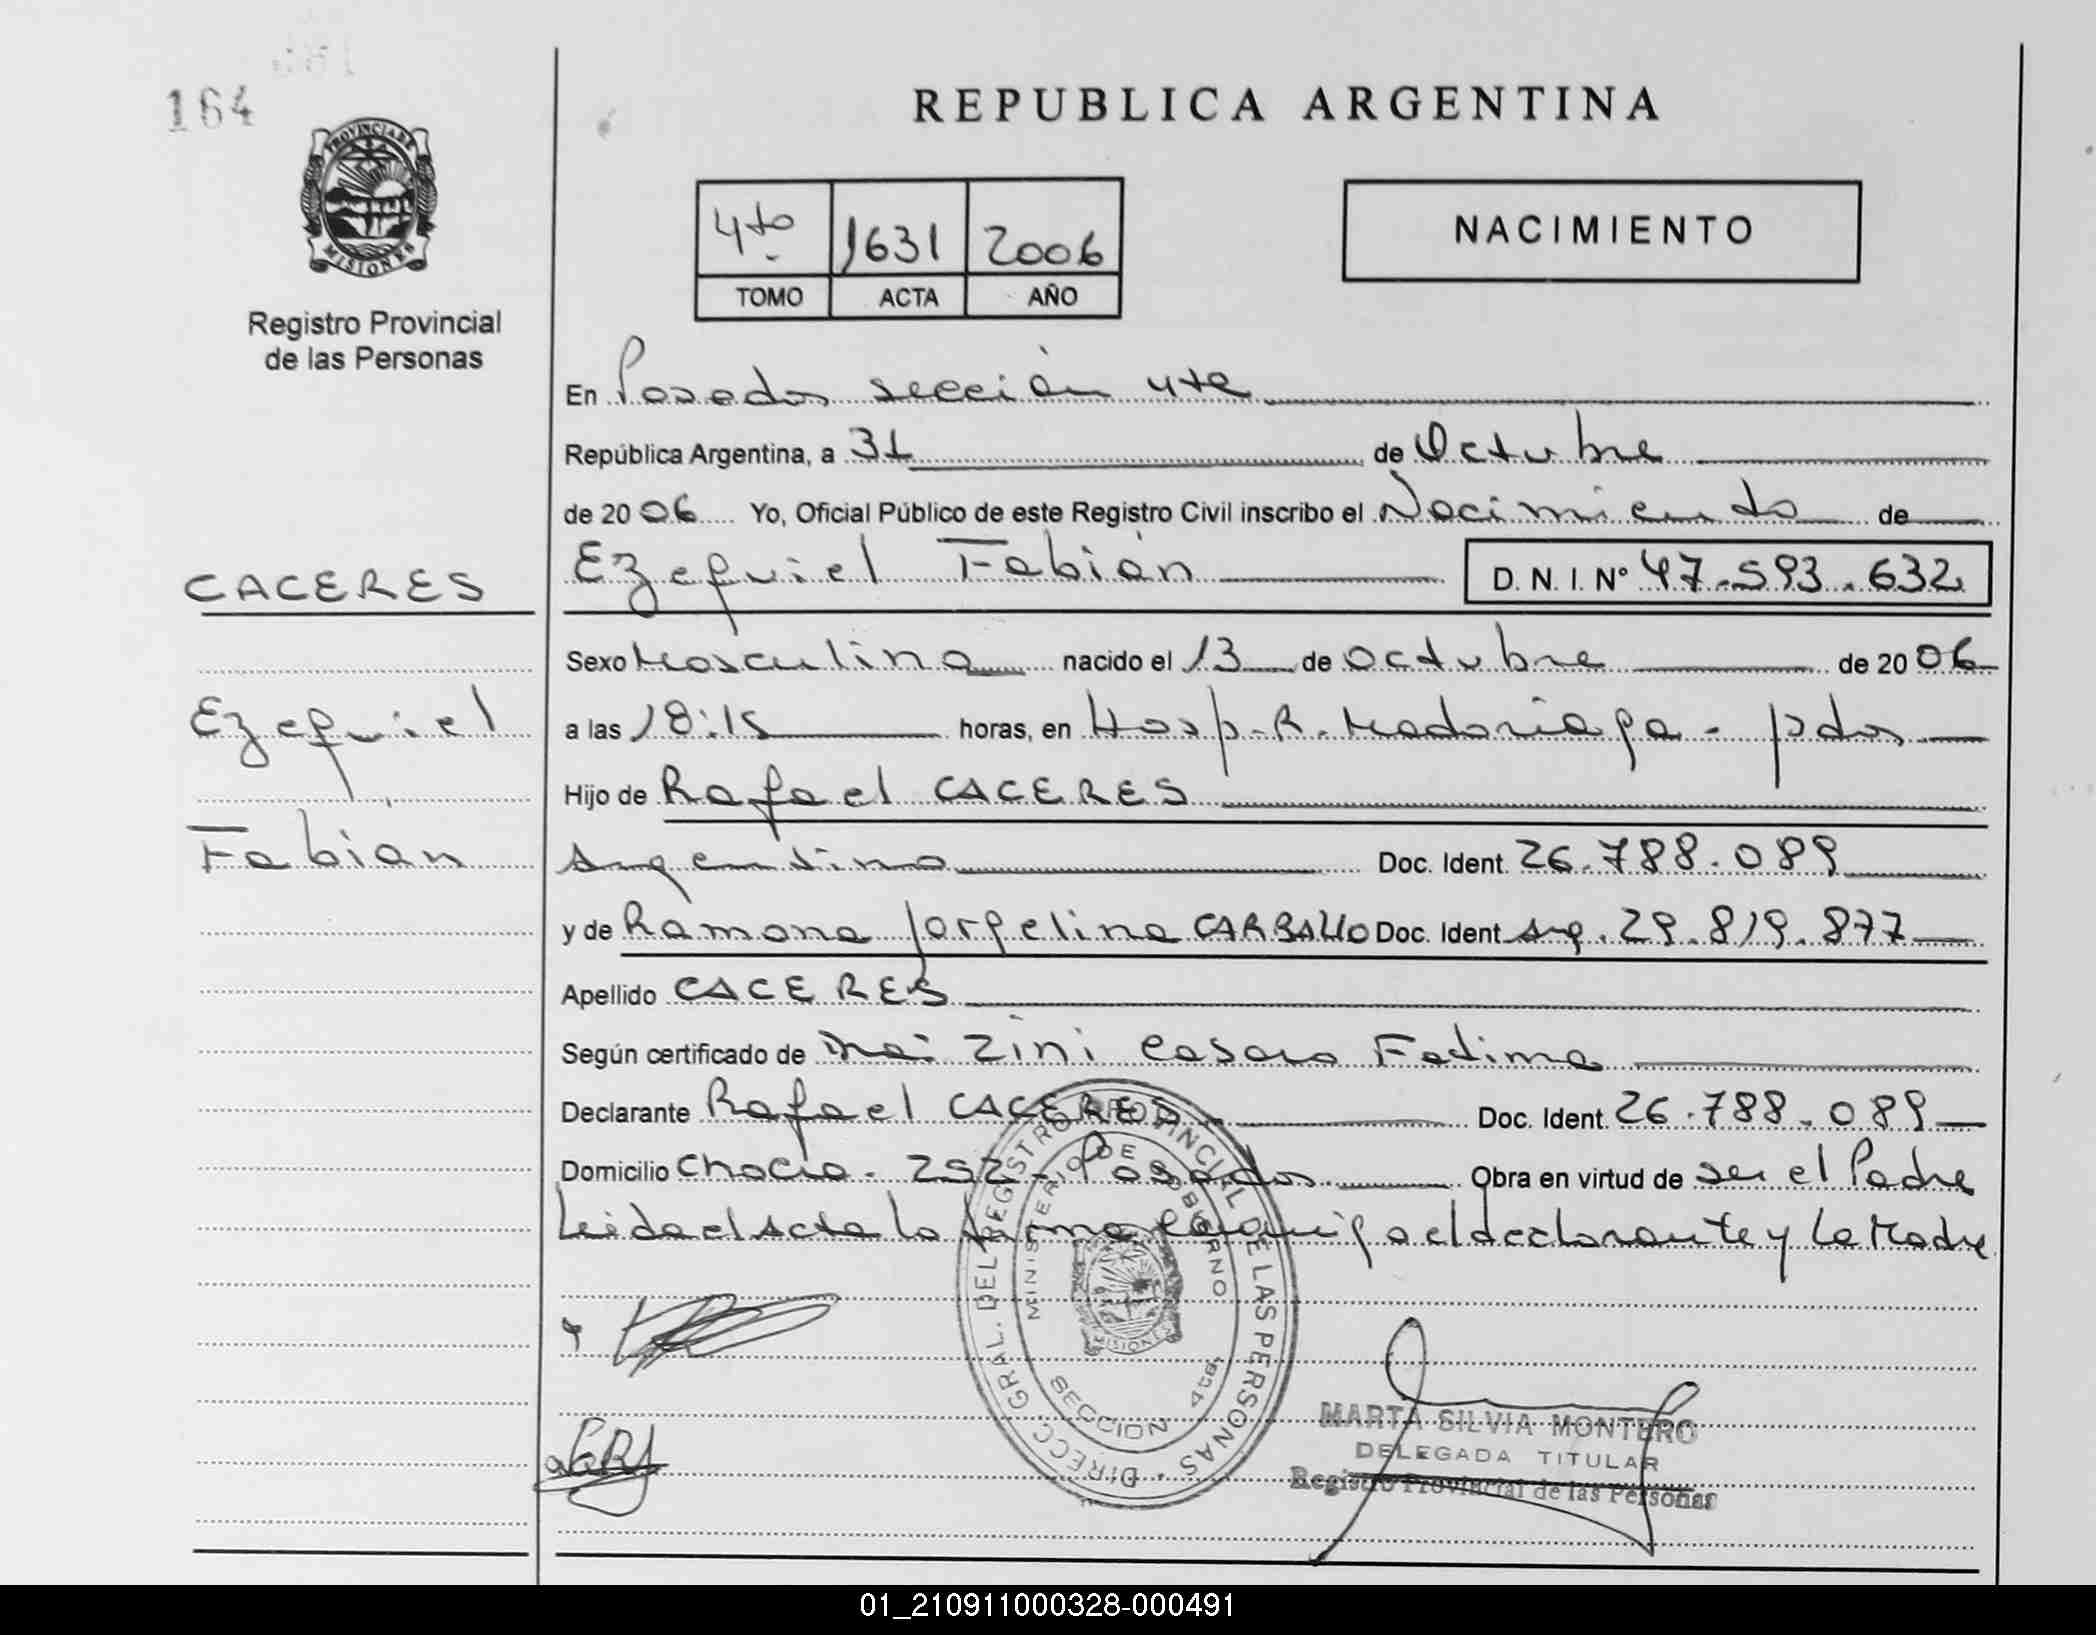 164
PROVINCIA DE
MISIONES
Registro Provincial
de las Personas
REPUBLICA ARGENTINA
4to 1631 2006
TOMO ACTA AÑO
NACIMIENTO
En Posadas sección 4ta
República Argentina, a 31 de Octubre
de 2006 Yo, Oficial Público de este Registro Civil inscribo el Nacimiento de
CACERES
Ezequiel Fabián D. N. I. Nº 47.593.632
Sexo Masculino nacido el 13 de Octubre de 2006
Ezequiel
a las 18:15 horas, en Hosp. R. Madariaga - pdas
Hijo de Rafael CACERES
Fabián
Argentino Doc. Ident. 26.788.089
y de Ramona Jorgelina CARBALLO Doc. Ident Arg. 29.819.877
Apellido CACERES
Según certificado de Zini Fatima
Declarante Rafael CACERES Doc. Ident. 26.788.089
Domicilio Chacra - 252 - Posadas Obra en virtud de ser el Padre
Leida el Acta la firma conmigo el declarante y la Madre
DIRECC. GRAL. DEL REGISTRO PROVINCIAL DE LAS PERSONAS
MINISTERIO DE GOBIERNO
MISIONES
SECCION 4ta.
MARTA SILVIA MONTERO
DELEGADA TITULAR
Registro Provincial de las Personas
01_210911000328-000491